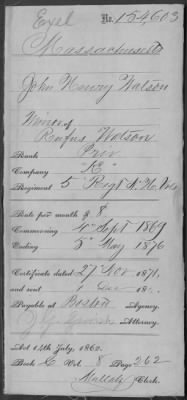 Exel No. 154,603
Massachusetts
John Henry Watson
Minor of
Rufus Watson
Rank Priv
Company "K"
Regiment 5" Regt
Rate per month $ 8
Commencing 4" Sept 1869
Ending 5" May 1876
Certificate dated 27 Nov 1871,
and sent 1 Dec 187
Payable at Boston Agency.
Attorney.
Act 14th July, 1862.
Book Vol. 8 Page 262
Clerk.